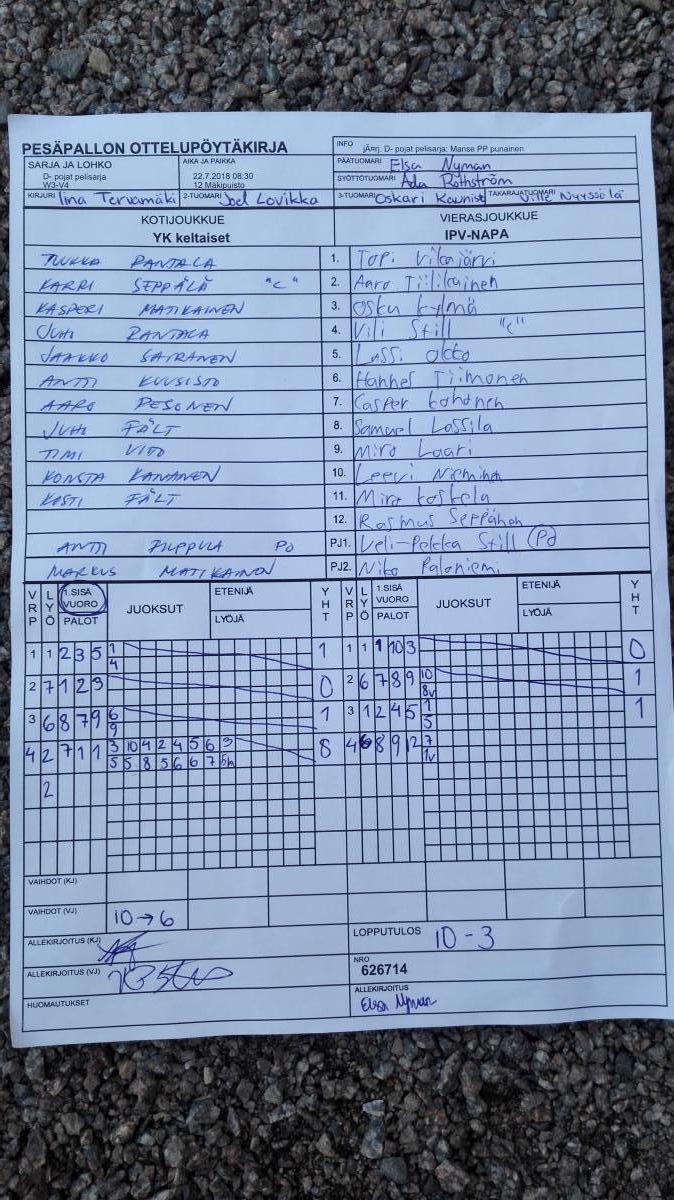 PESÄPALLON OTTELUPÖYTÄKIRJA
INFO jÄrrj. D- pojat pelisarja: Manse PP punainen
SARJA JA LOHKO
D- pojat pelisarja
W3-V4
AIKA JA PAIKKA
22.7.2018 08:30
12 Mäkipuisto
PÄÄTUOMARI Elsa Nyman
SYÖTTÖTUOMARI Ada Rothström
KIRJURI Iina Tervamäki 2-TUOMARI Joel Lovikka 3-TUOMARI Oskari Kaunisto TAKARAJATUOMARI Ville Nyyssölä
KOTIJOUKKUE VIERASJOUKKUE
YK keltaiset IPV-NAPA
TUUKKA RANTALA 1. Topi Vilkajärvi
KARRI SEPPÄLÄ "C" 2. Aaro Tiilikainen
KASPERI MATIKAINEN 3. Osku Kylmä
JUHO RANTALA 4. Vili Still "C"
JAAKKO SAIRANEN 5. Lassi Okko
ANTTI KUUSISTO 6. Hannes Tiimonen
AARO PESONEN 7. Casper Kohonen
JUHO FÄLT 8. Samuel Lassila
TIMI 9. Miro Laari
KONSTA KANANEN 10. Leevi Nieminen
KOSTI FÄLT 11. Miro Koskela
12. Rasmus Seppänen
ANTTI FILPPULA PJ1. Veli-Pekka Still (PJ)
MARKUS MATIKAINEN PJ2. Niko Paloniemi
VRP LYÖ 1.SISÄ VUORO PALOT JUOKSUT ETENIJÄ LYÖJÄ YHT VRP LYÖ 1.SISÄ VUORO PALOT JUOKSUT ETENIJÄ LYÖJÄ YHT
1 1 2 3 5 1 1 1 1 1 10 3 0
4
2 7 1 2 9 0 2 6 7 8 9 10 1
8v
3 6 8 7 9 6 1 3 1 2 4 5 1 1
9 5
4 2 7 1 1 3 10 4 2 4 5 6 3 8 4 6 8 9 12 7
5 5 8 5 6 6 7 5h 1v
2
VAIHDOT (KJ)
VAIHDOT (VJ) 10→6
ALLEKIRJOITUS (KJ)
LOPPUTULOS 10 - 3
ALLEKIRJOITUS (VJ)
NRO
626714
HUOMAUTUKSET
ALLEKIRJOITUS
Elsa Nyman